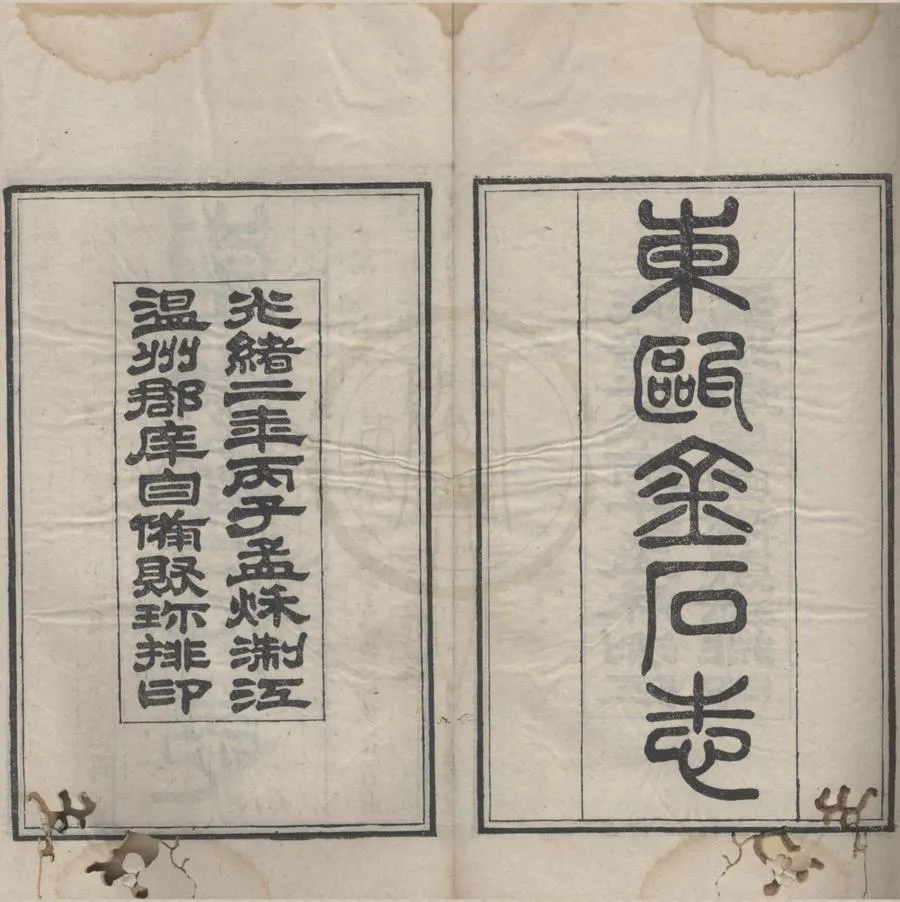 東甌金石志
光緒二年丙子孟秌淛江
温州郡庠自備聚珎排印